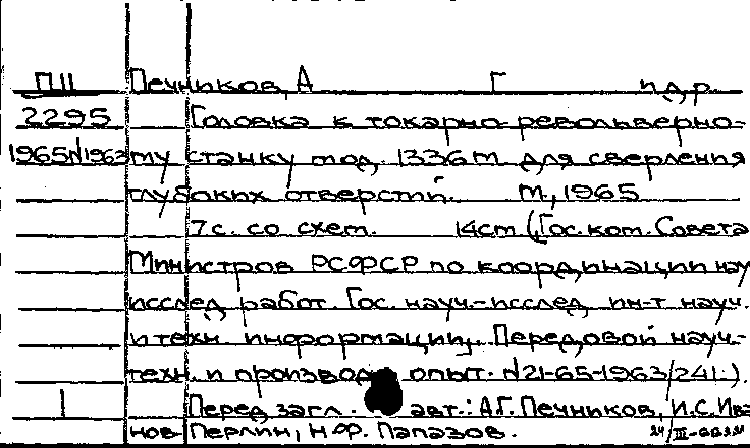 ПII Печников, А Г и др.
2295 Головка к токарно-револьверно-
1965N1963 му станку мод. 1336М для сверления
глубоких отверстий. М., 1965
7 с. со схем. 14cm (Гос. ком. Совета
Министров РСФСР по координации нау
исслед работ. Гос. науч.-исслед ин-т науч.
и техн. информации, Передовой науч.-
техн. и производ опыт. N21-65-1963/241.).
1 Перед загл. авт.: А.Г. Печников, И.С. Ива
нов Перлин, Н.Ф. Папазов.